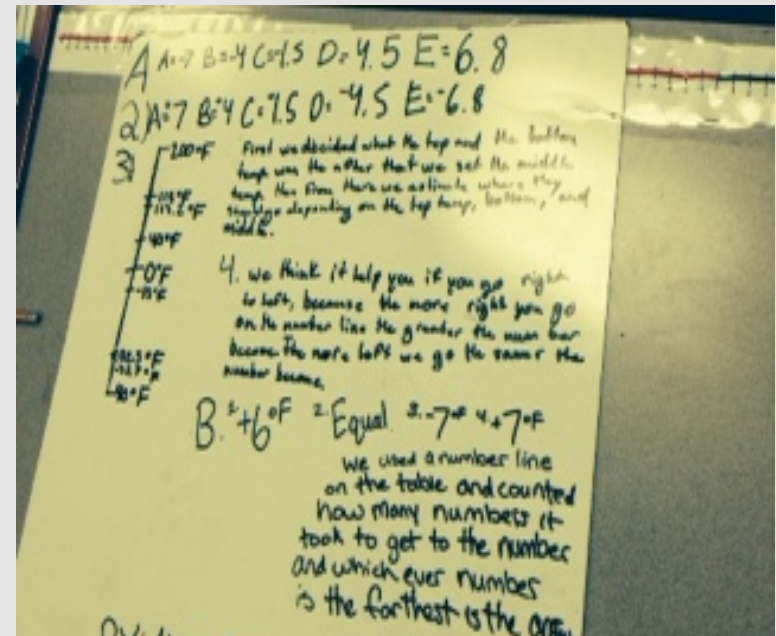 A A=-7 B=-4 C=-1.5 D=4.5 E=6.8
2) A=7 B=4 C=1.5 D=-4.5 E=-6.8
3)
200°F
40°F
0°F
-15°F
-90°F
First we decided what the top and the bottom
temp was the after that we set the middle
temp. then from there we estimate where they
depending on the top temp, bottom, and
middle.
4. we think it help you if you go right
to left, because the more right you go
on the number line the greater the num ber
become. The more left we go the the
number become.
B. 1. +6°F 2. Equal 3. -7°F 4. +7°F
we used a number line
on the table and counted
how many numbers it
took to get to the number
and which ever number
is the farthest is the